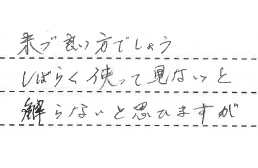 まづ良い方でしょう
しばらく使って見ないと
解らないと思ひますが